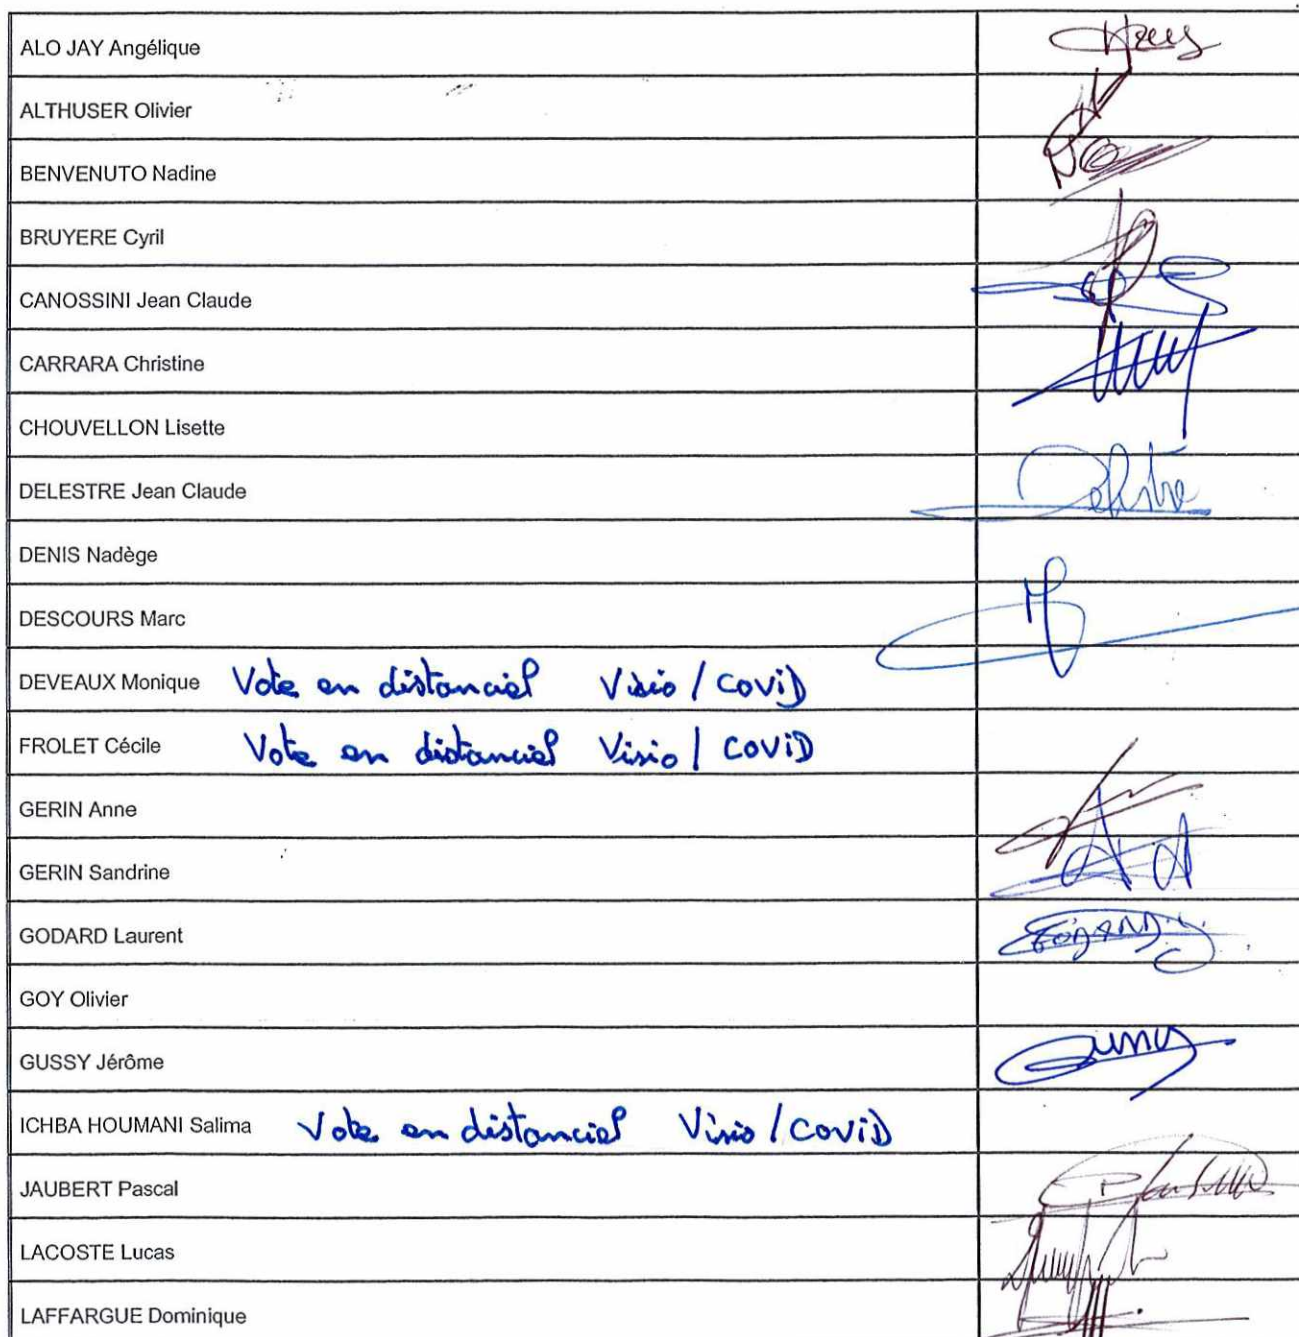 ALO JAY Angélique
ALTHUSER Olivier
BENVENUTO Nadine
BRUYERE Cyril
CANOSSINI Jean Claude
CARRARA Christine
CHOUVELLON Lisette
DELESTRE Jean Claude Delestre
DENIS Nadège
DESCOURS Marc
DEVEAUX Monique Vote en distanciel Visio / COViD
FROLET Cécile Vote en distanciel Visio / COViD
GERIN Anne
GERIN Sandrine
GODARD Laurent
GOY Olivier
GUSSY Jérôme Gussy
ICHBA HOUMANI Salima Vote en distanciel Visio / COViD
JAUBERT Pascal
LACOSTE Lucas
LAFFARGUE Dominique